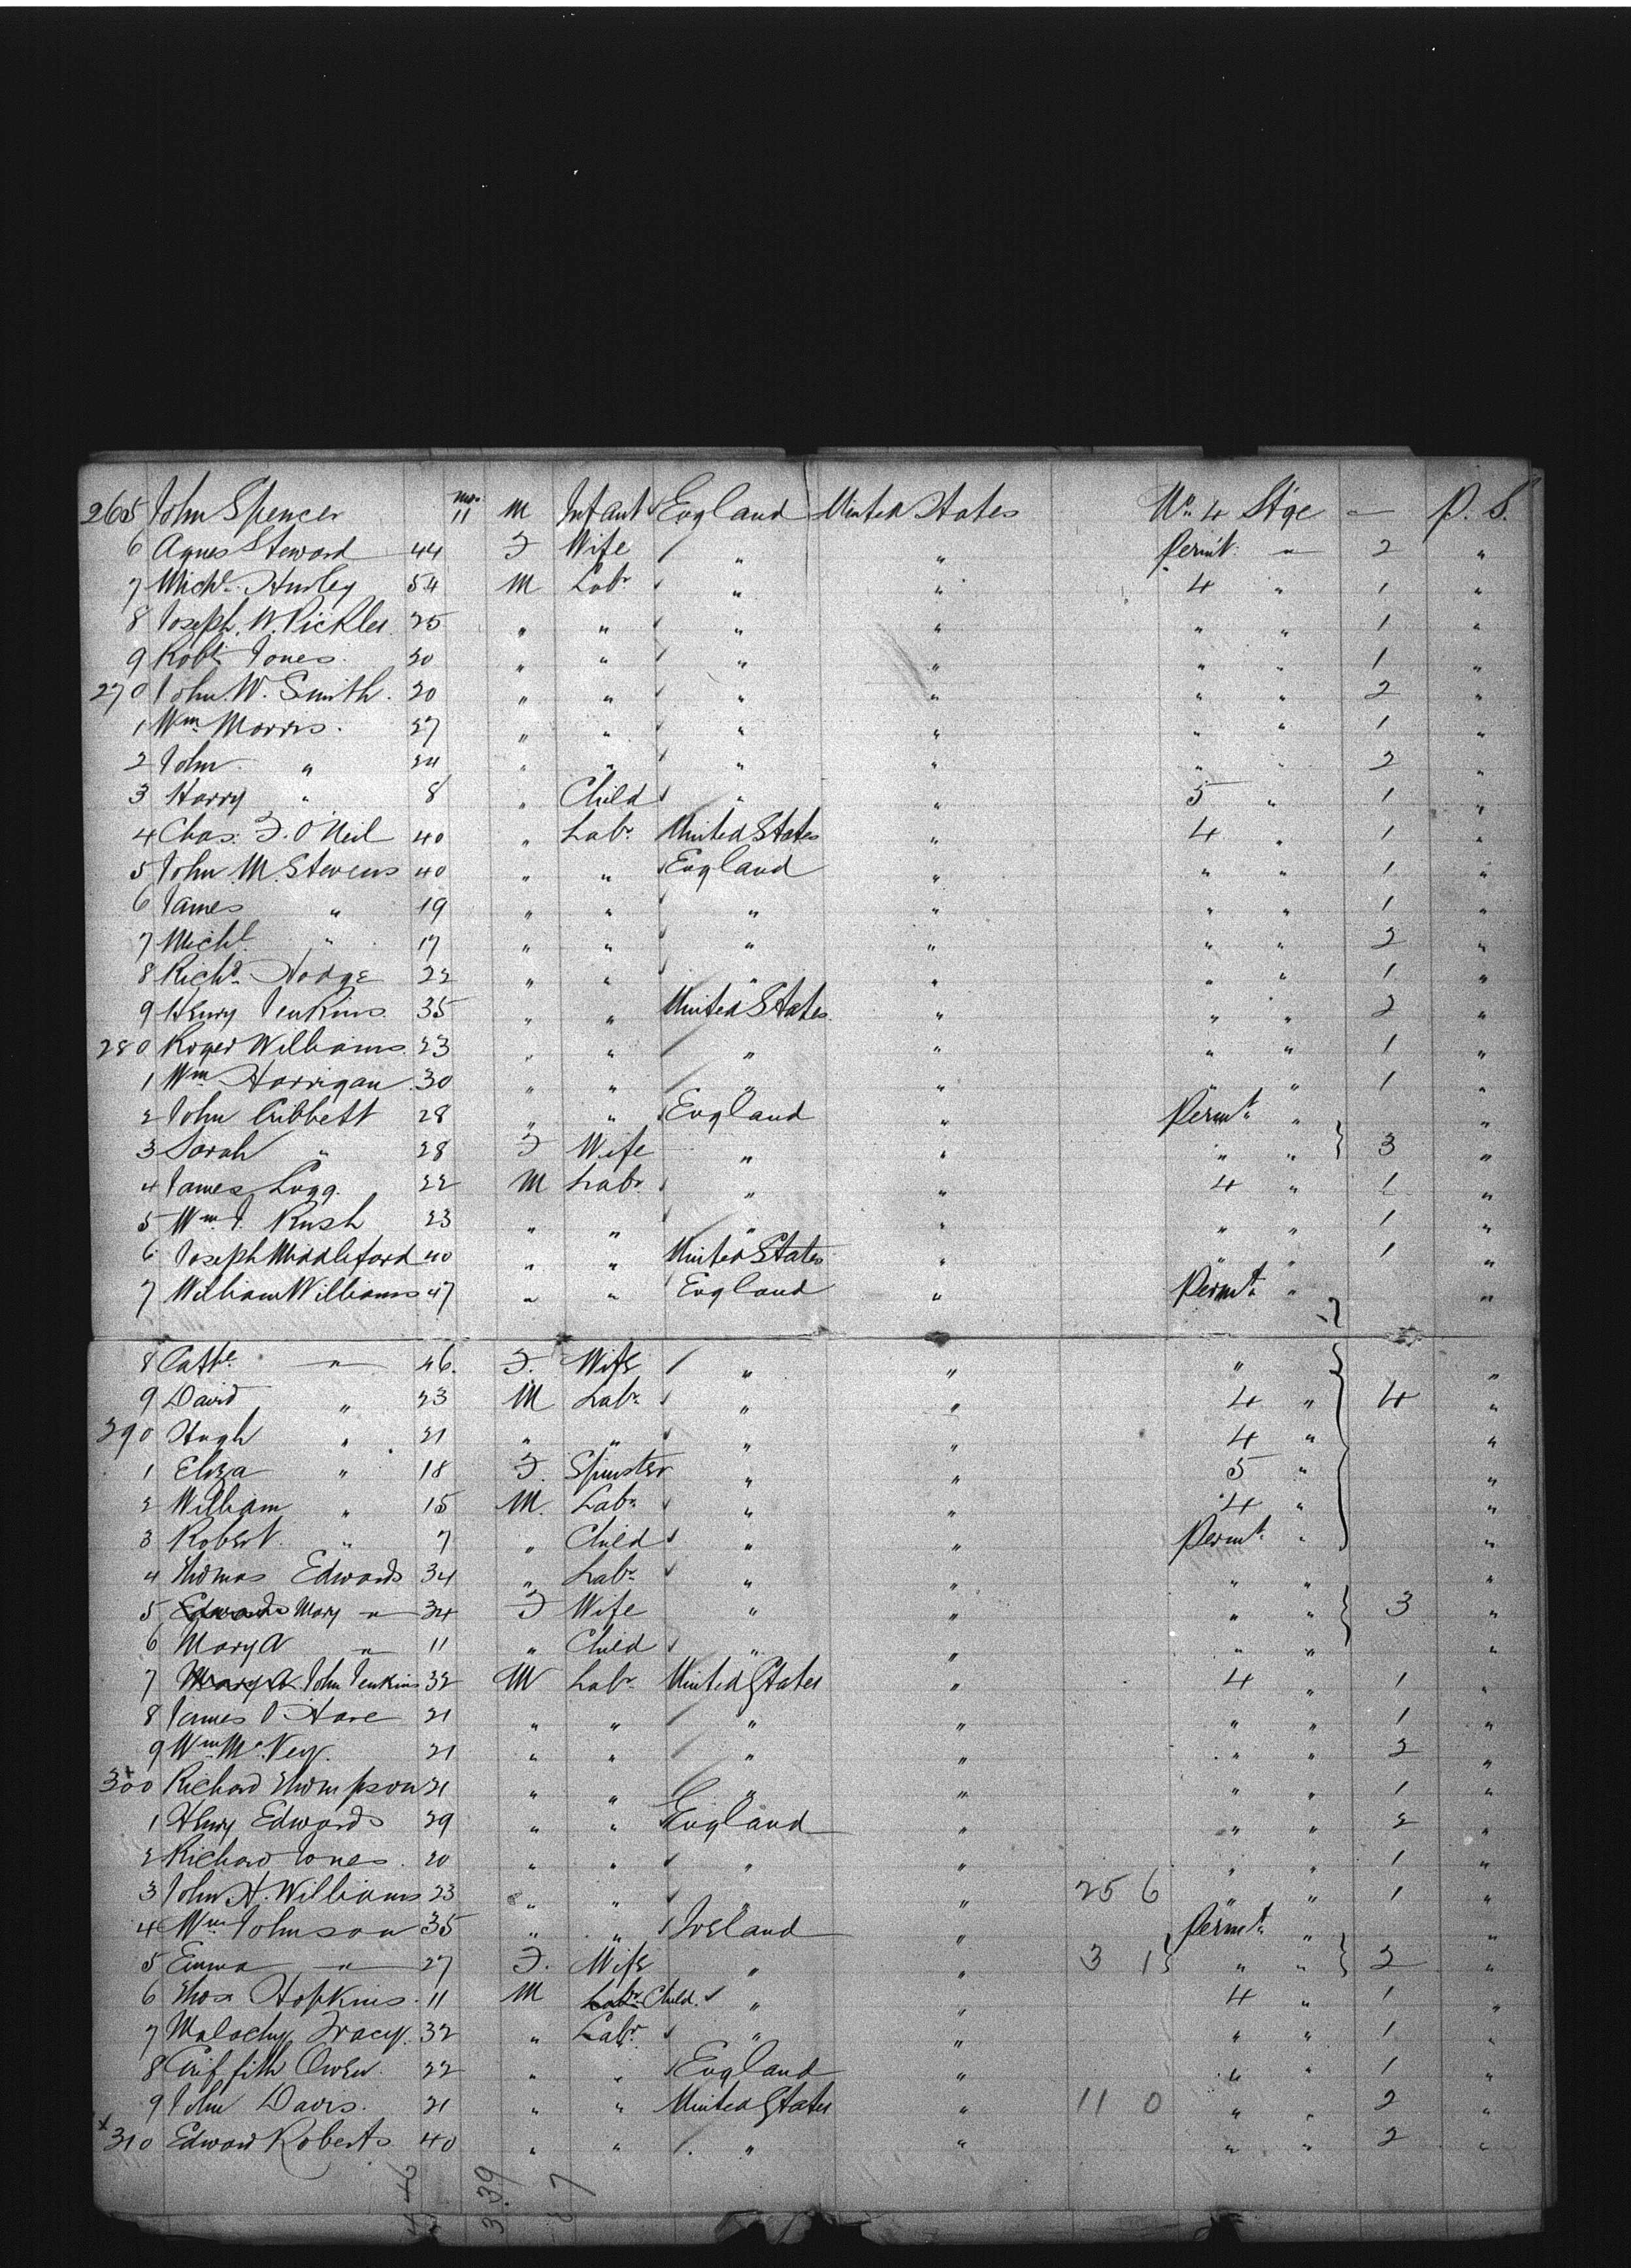 265 John Spencer mos. 11 M Infant England United States No. 4 Stge — P. S.
6 Agnes Steward 44 F Wife " " Permt. " 2 "
7 Michl. Hurley 54 M Labr " " 4 " 1 "
8 Joseph. W. Pickles 25 " " " " " " 1 "
9 Robt. Jones 20 " " " " " " 1 "
270 John. W. Smith. 20 " " " " " " 2 "
1 Wm Morris. 27 " " " " " " 1 "
2 John " 24 " " " " " " 2 "
3 Harry " 8 " Child " " 5 " 1 "
4 Chas. F. O'Neil 40 " Labr. United States " 4 " 1 "
5 John M. Stevens 40 " " England " " " 1 "
6 James " 19 " " " " " " 1 "
7 Michl. " 17 " " " " " " 2 "
8 Richd. Hodge 22 " " " " " " 1 "
9 Henry Jenkins 35 " " United States " " " 2 "
280 Roger Williams. 23 " " " " " " 1 "
1 Wm Harrigan 30 " " " " " " 1 "
2 John Cribbett 28 " " England " Permt. " "
3 Sarah " 28 F Wife " " " " 3 "
4 James Lugg. 22 M Labr. " " 4 " 1 "
5 Wm. J. Rush 23 " " " " " " 1 "
6 Joseph Middleford 40 " " United States " " " 1 "
7 William Williams 47 " " England " Permt. " "
8 Cathe. " 46. F. Wife " " " "
9 David " 23 M Labr. " " 4 " 4 "
290 Hugh " 21 " " " " 4 " "
1 Eliza " 18 F. Spinster " " 5 " "
2 William " 15 M. Labr. " " 4 " "
3 Robert " 7 " Child " " Permt. " "
4 Thomas Edwards 34 " Labr. " " " " "
5 Edwards Mary " 34 F Wife " " " " 3 "
6 Mary A " 11 " Child " " " " "
7 Mary A John Jenkins 32 M Labr United States " 4 " 1 "
8 James O'Hare 21 " " " " " " 1 "
9 Wm. McVey. 21 " " " " " " 2 "
300 Richard Thompson 21 " " " " " " 1 "
1 Henry Edwards 29 " " England " " " 2 "
2 Richard Jones. 20 " " " " " " 1 "
3 John. H. Williams 23 " " " " 25 6 " " 1 "
4 Wm Johnson 35 " " Ireland " Permt. " "
5 Emma " 27 F. Wife " " 3 1 " " 2 "
6 Thos Hopkins 11 M Labr. Child. " " 4 " 1 "
7 Malachy Tracy. 32 " Labr. " " " " 1 "
8 Griffith Owen. 22 " " England " " " 1 "
9 John Davis. 21 " " United States " 11 0 " " 2 "
310 Edward Roberts 40 " " " " " " 2 "
339